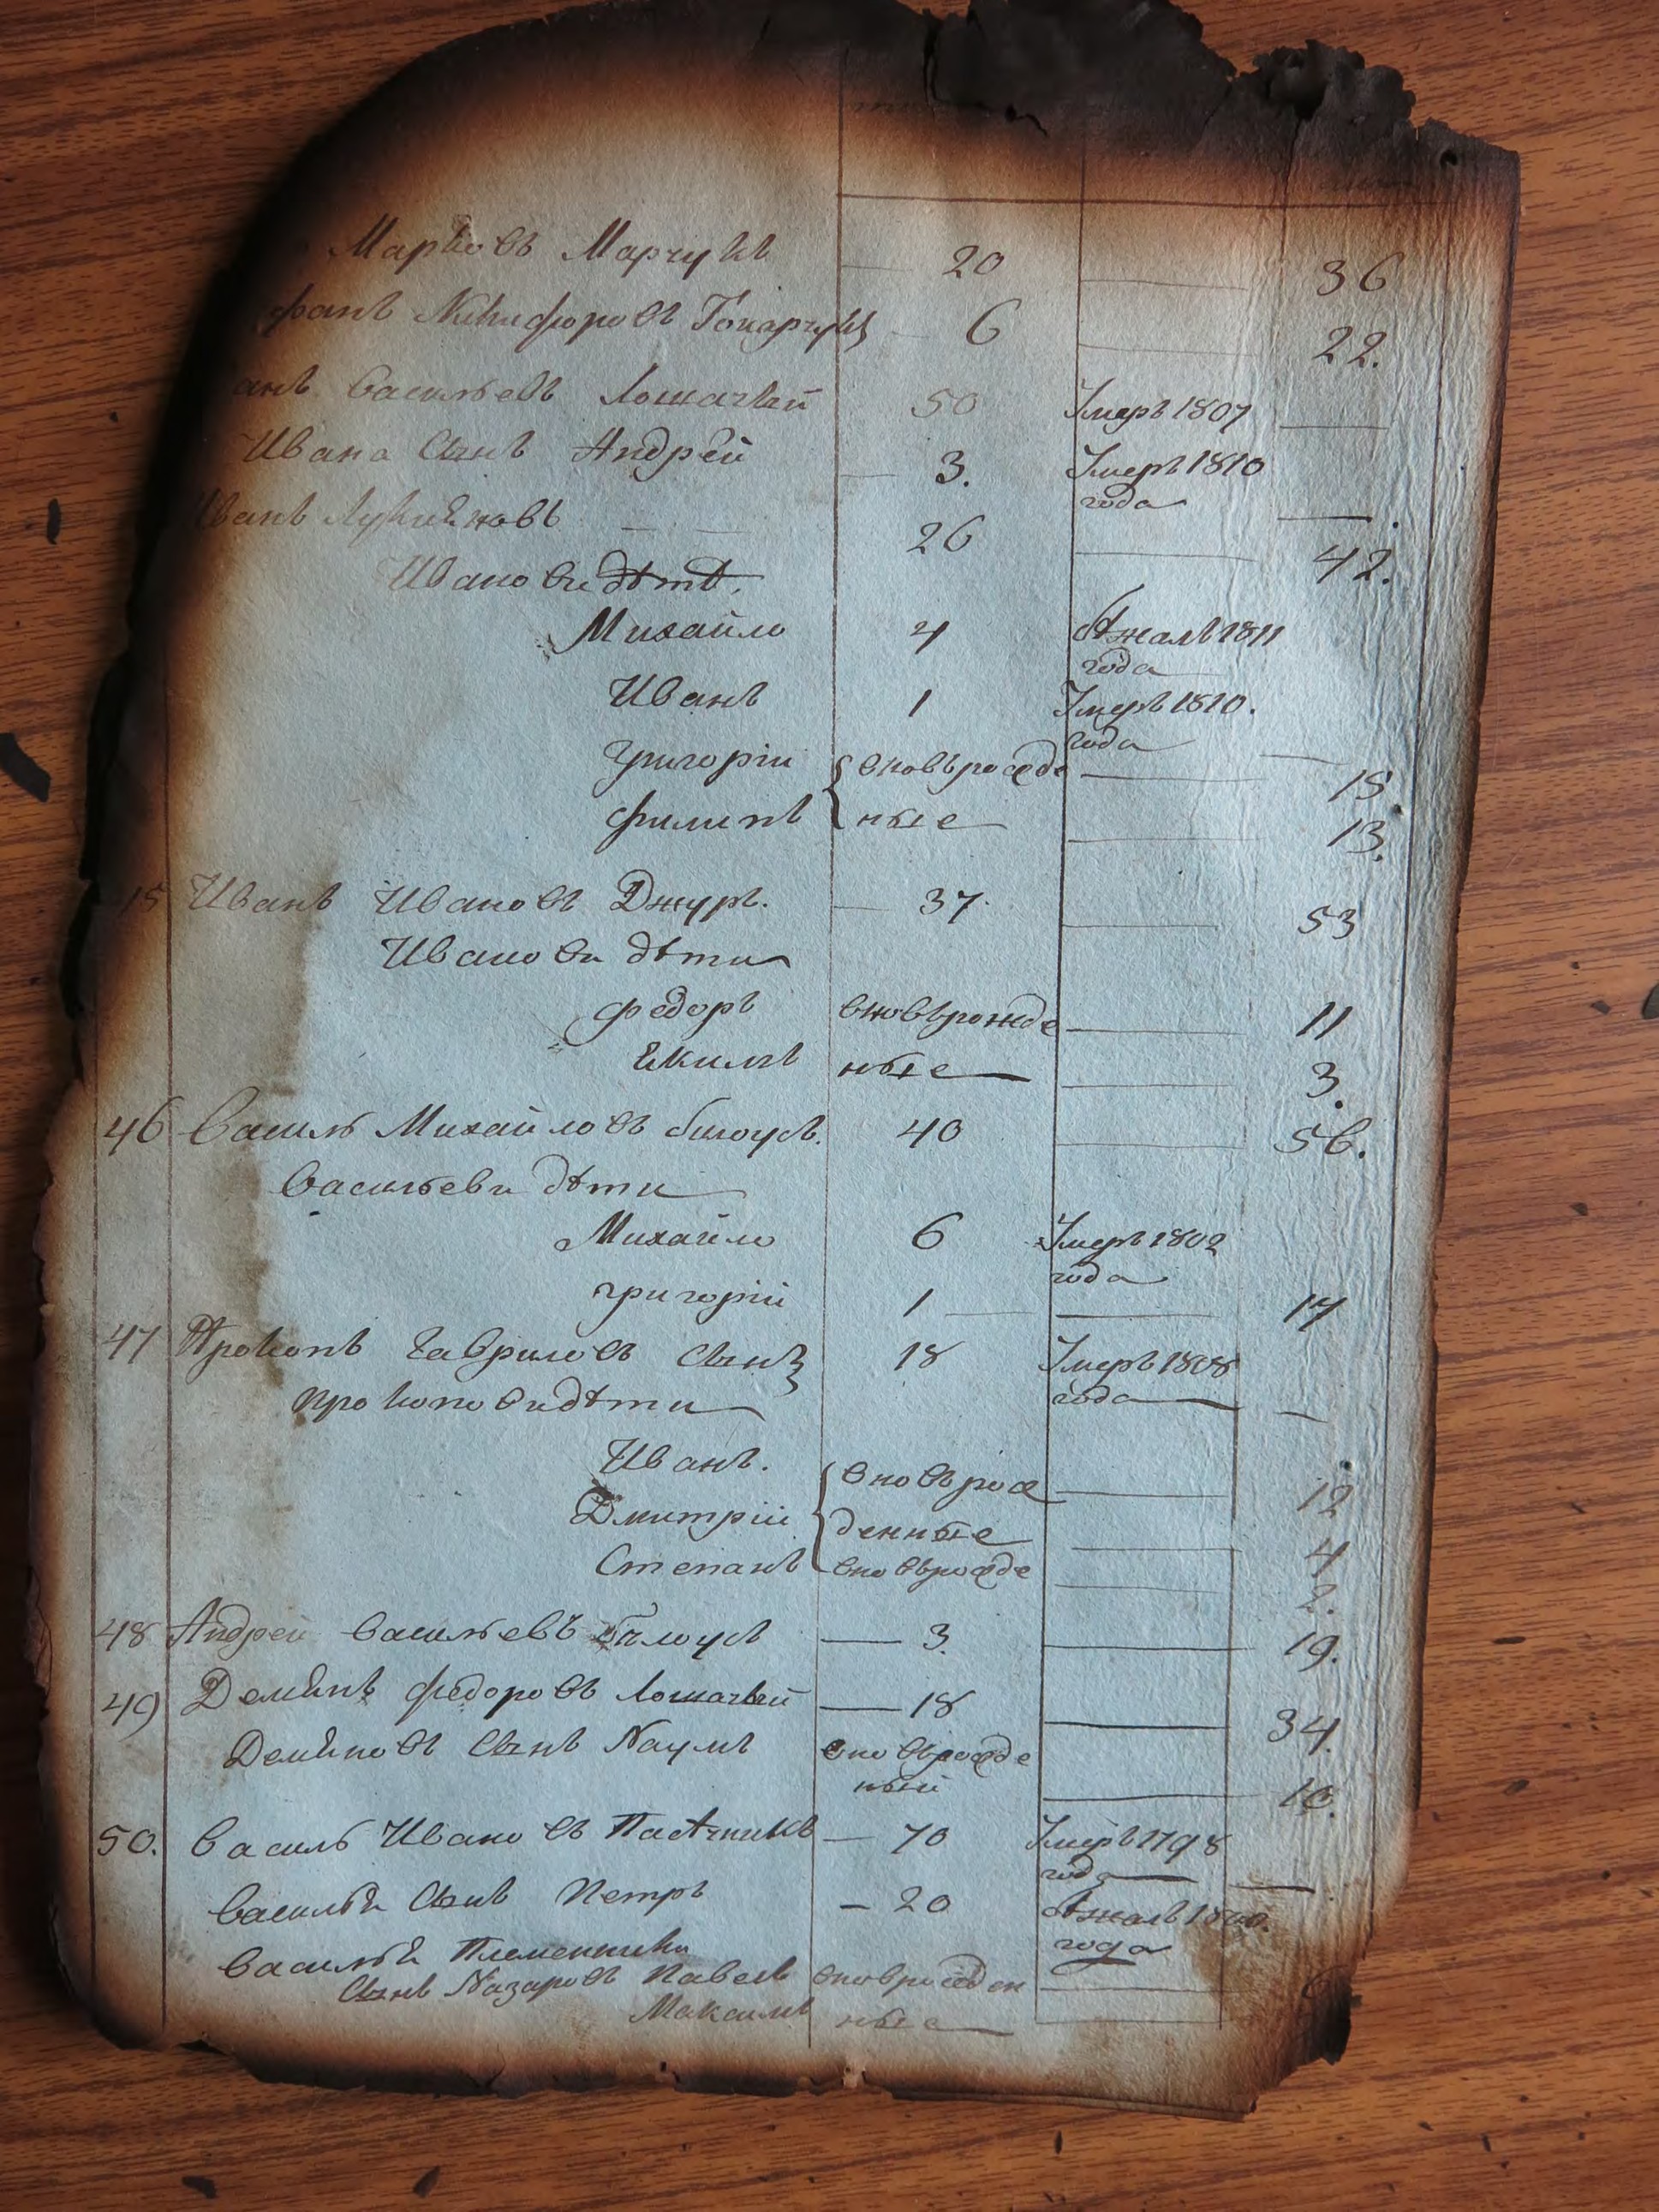 Марковъ Марчукъ — 20 — 36
фанъ Никифоровъ Гонарчукъ — 6 — 22.
анъ Васильевъ Лошачкий 50 Умеръ 1807 —
Ивана Сынъ Андрей — 3. Умеръ 1810
года —
Иванъ Лукиѣновъ — — 26 — 42.
Иванови дѣти.
Михайло 4 Отжалъ 1811
года
Иванъ 1 Умеръ 1810.
года —
Григорїи вновърожде — 15
Филипъ ные — 13.
15 Иванъ Ивановъ Джуръ. — 37. — 53
Иванови дѣти
Федоръ вновърожде — 11
Екимъ ные — 3.
46 Василь Михайловъ билоусъ. 40 — 56.
Васильеви дѣти
Михайло 6 Умеръ 1802
года
Григорїй 1 — — 17
47 Прокопъ Гавриловъ Сынъ 18 Умеръ 1808
Прокопови дѣти года — —
Иванъ. вновърож — 12
Дмитрїи денные — 4
Степанъ вновърожде — 2.
48 Андрей Васильевъ бѣлоусъ — 3 — 19.
49 Демѣнъ Федоровъ Лошачкий — 18 — 34.
Демѣновъ Сынъ Наумъ вновърожде
ный — 10.
50. Василь Ивановъ Пасѣчникъ — 70 Умеръ 1798
года — —
Васильѣ Сынъ Петръ — 20 Отжалъ
года
Васильѣ Племенника
Сынъ Назаровъ Павелъ вноврожден —
Максимъ ные —